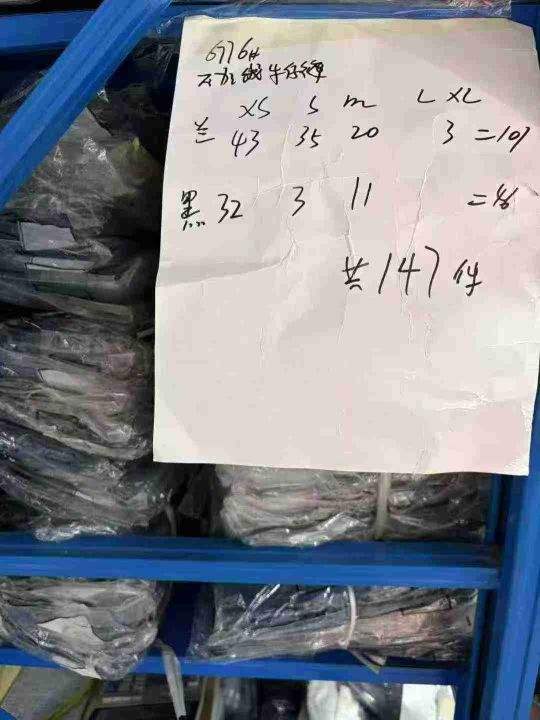 6776#
XS S m L XL
兰 43 35 20 3 =101
黑 32 3 11 =46
共147件